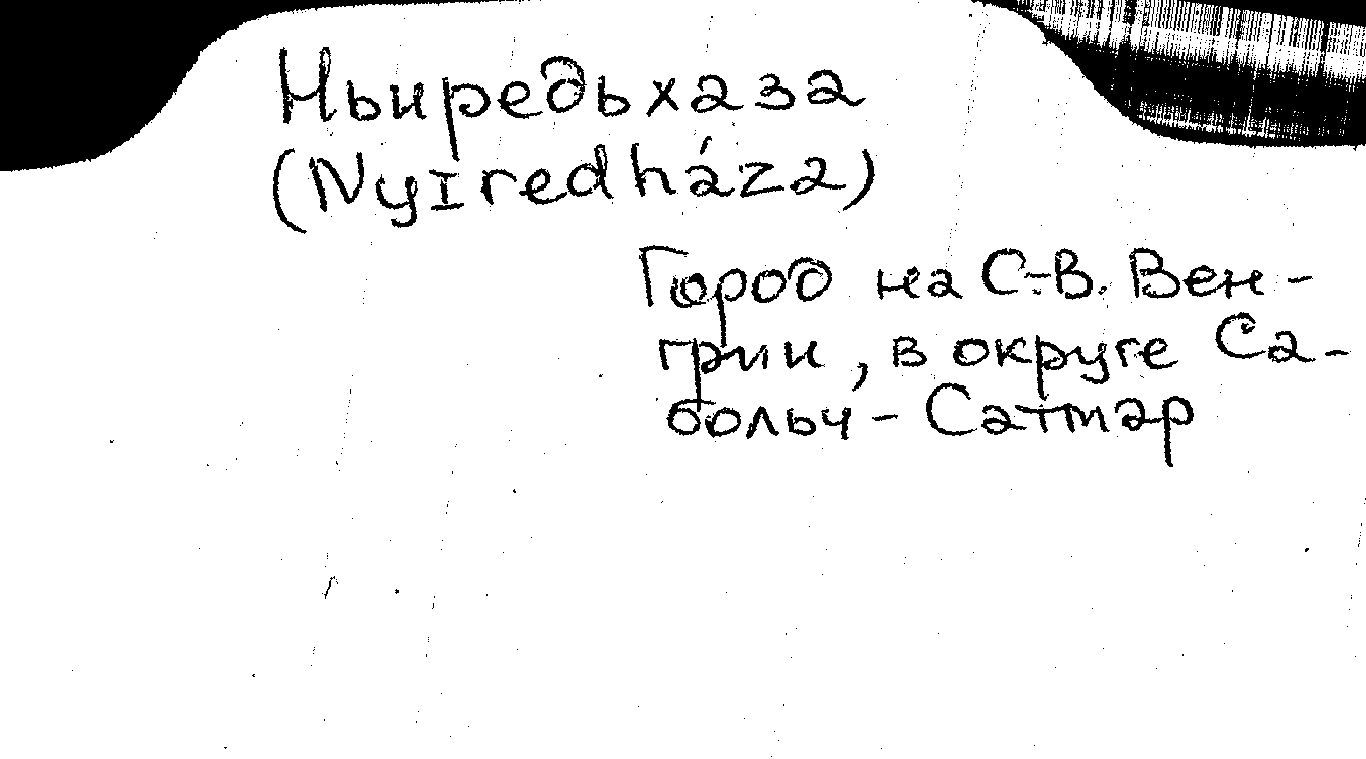 Ньиредьхаза
(Nyíredháza)
Город на С-В. Вен-
грии, в округе Са-
больч - Сатмар